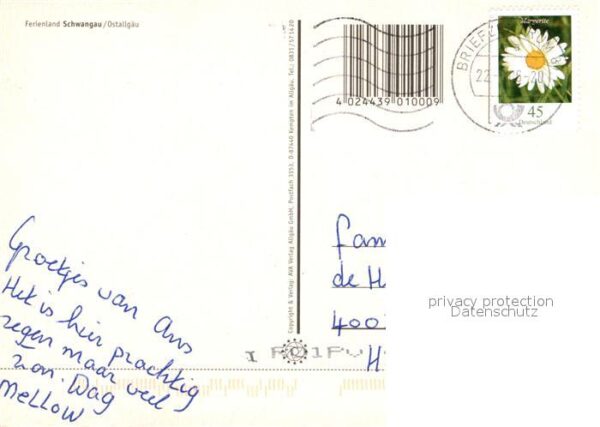 Ferienland Schwangau/Ostallgäu
Margerite
45
Deutschland
BRIEF
22
4 024439 010009
Copyright & Verlag: AVA Verlag Allgäu GmbH, Postfach 3153, D-87440 Kempten im Allgäu, Tel.: 0831/571420
Groetjes van Ans
Het is hier prachtig
regen maar veel
zon. Dag
Mellow
fam
de H
400
H
privacy protection
Datenschutz